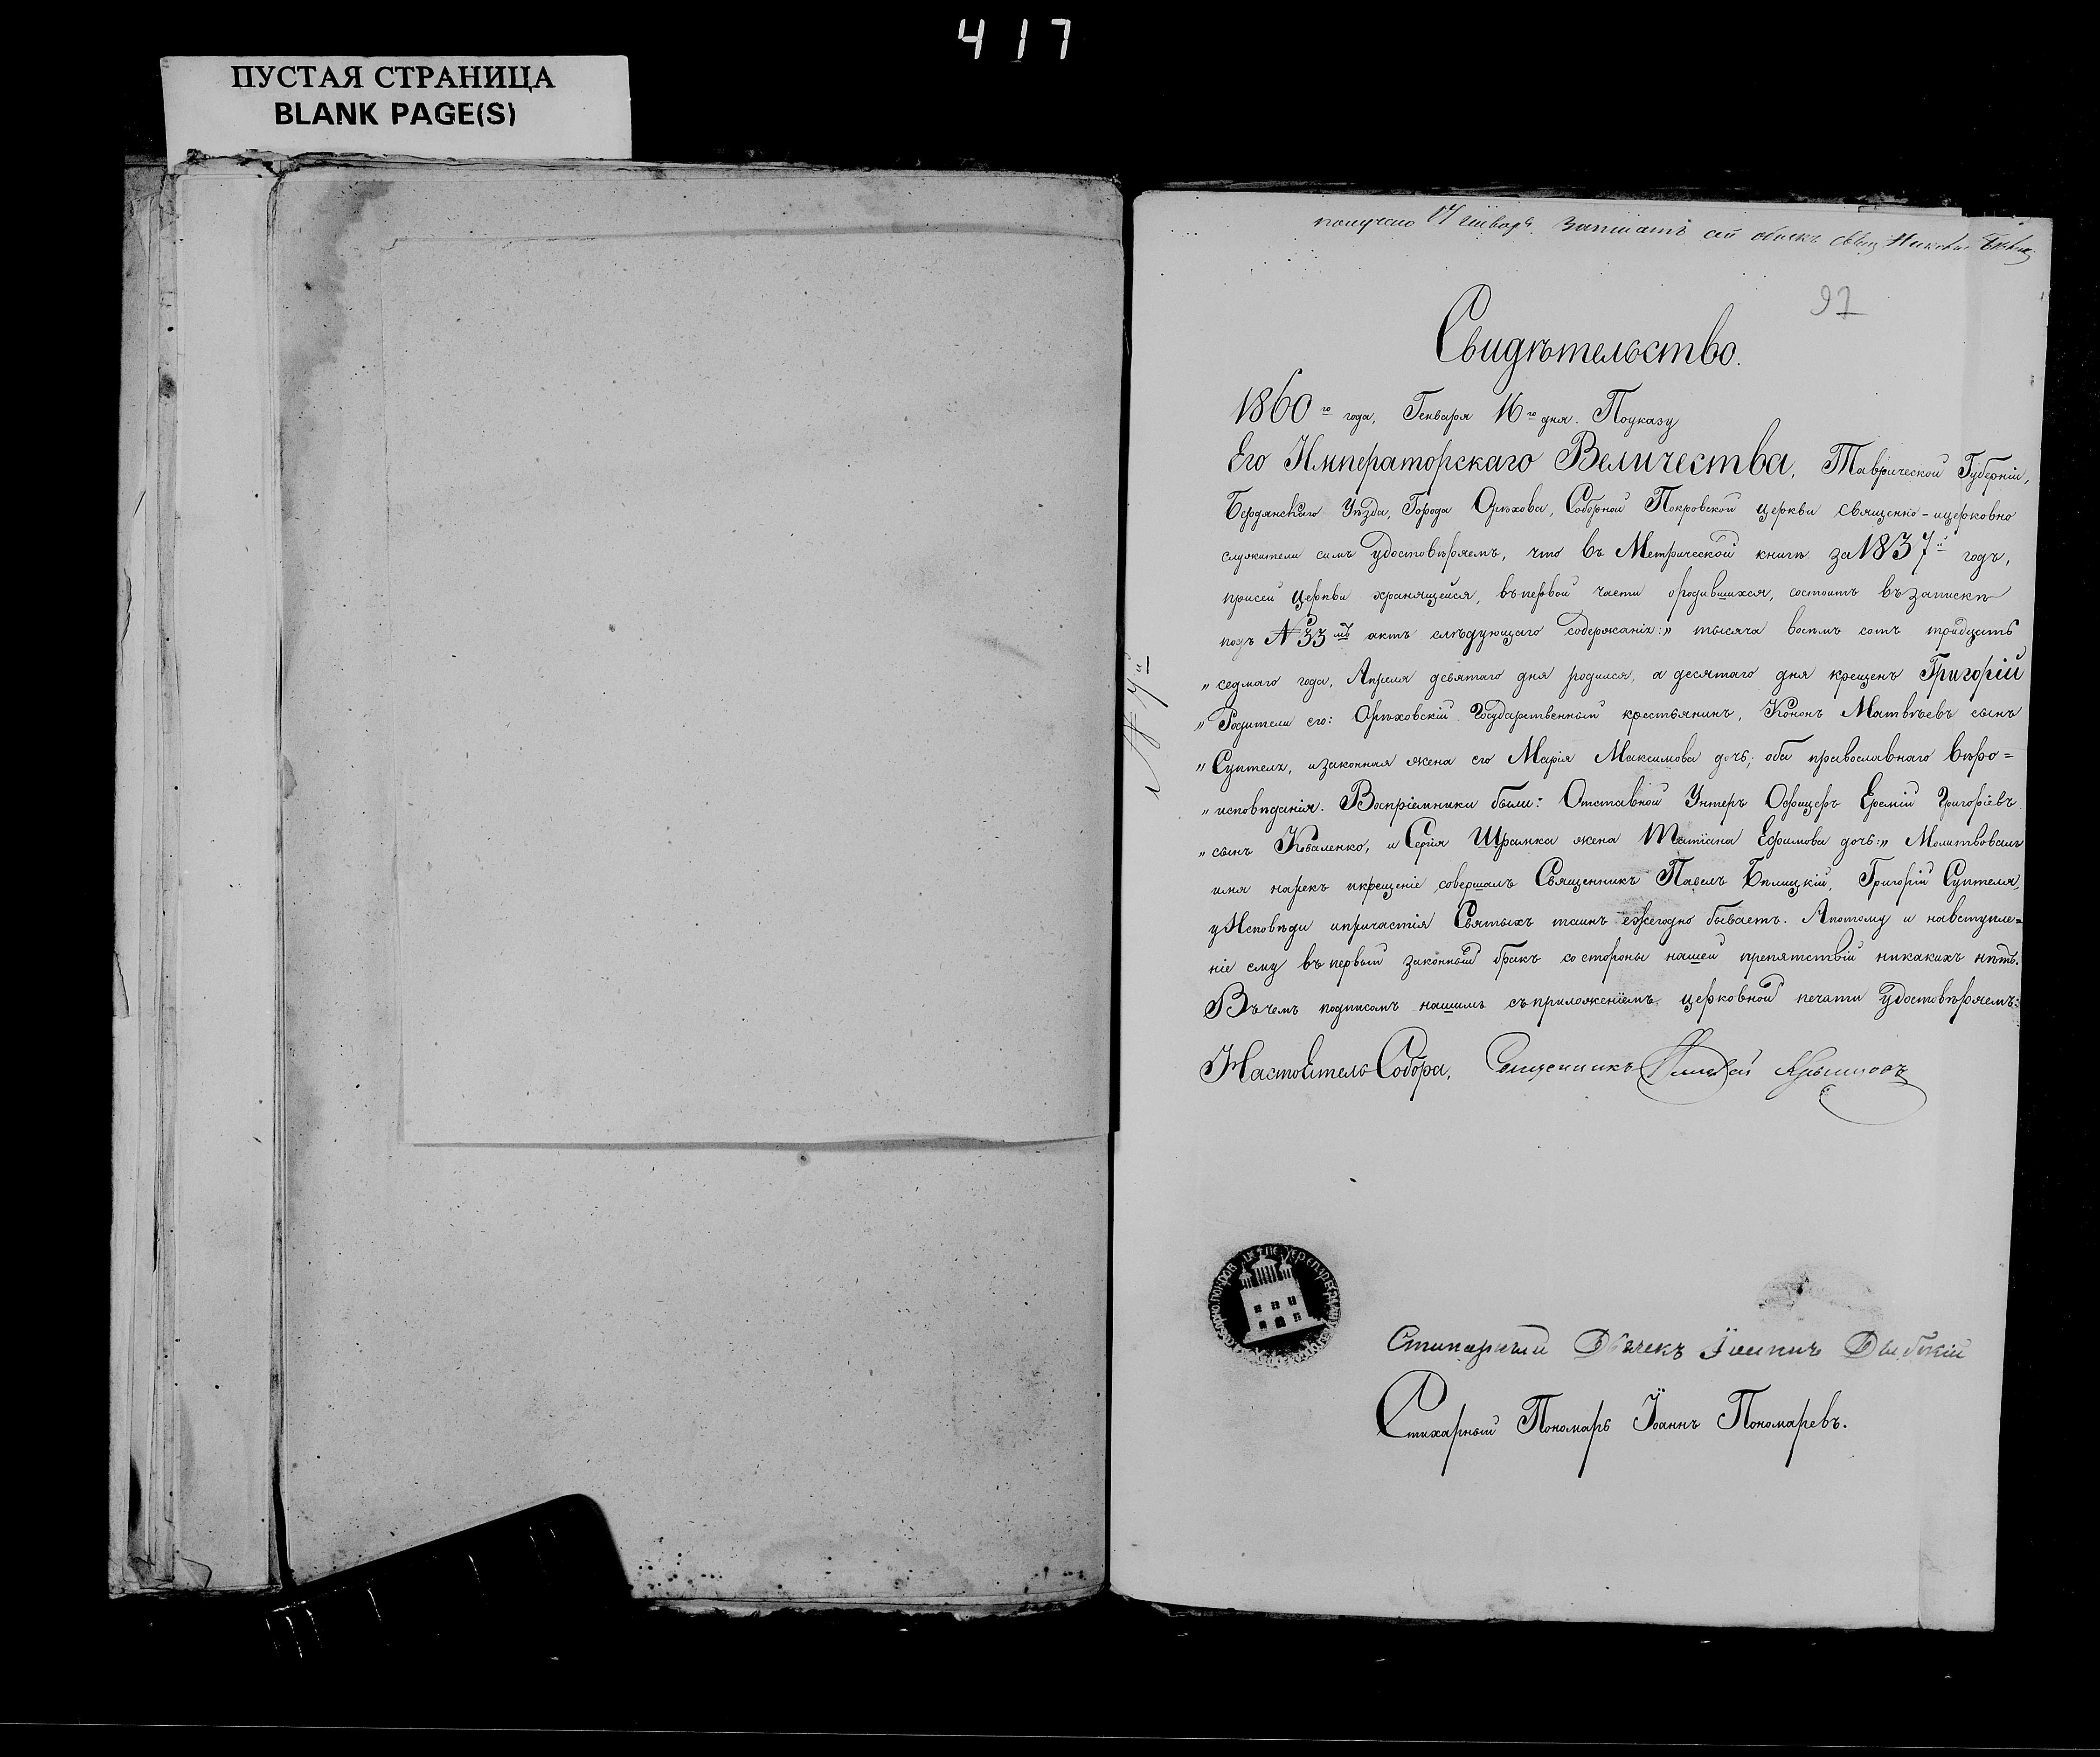 417
ПУСТАЯ СТРАНИЦА
BLANK PAGE(S)
получено 17 Генваря.
97
Свидѣтельство.
1860го года, Генваря 16го дня. Поуказу
Его Императорскаго Величества, Таврической Губерніи,
Бердянскаго Уѣзда, Города Орѣхова, Соборной Покровской церкви священно-ицерковно
служители симъ удостовѣряемъ, что въ Метрической книгѣ за 1837й годъ,
присей Церкви хранящейся, въпервой части ородившихся, состоитъ въ запискѣ
подъ №33мъ актъ слѣдующаго содержанія:„ тысяча восемь сотъ тридцать
„седмаго года, Апреля девятаго дня родился, а десятаго дня крещенъ Григорій
„Родители его: Орѣховскій Государственный крестьянинъ, Кононъ Матвѣевъ сынъ
„Суптеля, изаконная жена его Марія Максимова дочь; оба православнаго вѣро=
„исповѣданія. Воспріемники были: Отставной Унтеръ Офицеръ Еремій Григоріевъ
„сынъ Коваленко, и Сергія Шрамка жена Татіана Ефимова дочь:„ Молитвовалъ
имя нарекъ икрещеніе совершалъ Священникъ Павелъ Бѣлицкій, Григорій Суптеля,
уИсповѣди ипричастія Святыхъ таинъ ежегодно бываетъ. Апотому и навступле=
ніе ему въ первый законный бракъ состороны нашей препятствій никакихъ нѣтъ.
Въ чемъ подписомъ нашимъ съприложеніемъ церковной печати удостовѣряемъ:
Настоятель Собора, Священникъ
№ 4й
Стихарный Дьячекъ
Стихарный Пономарь Іоаннъ Пономаревъ.